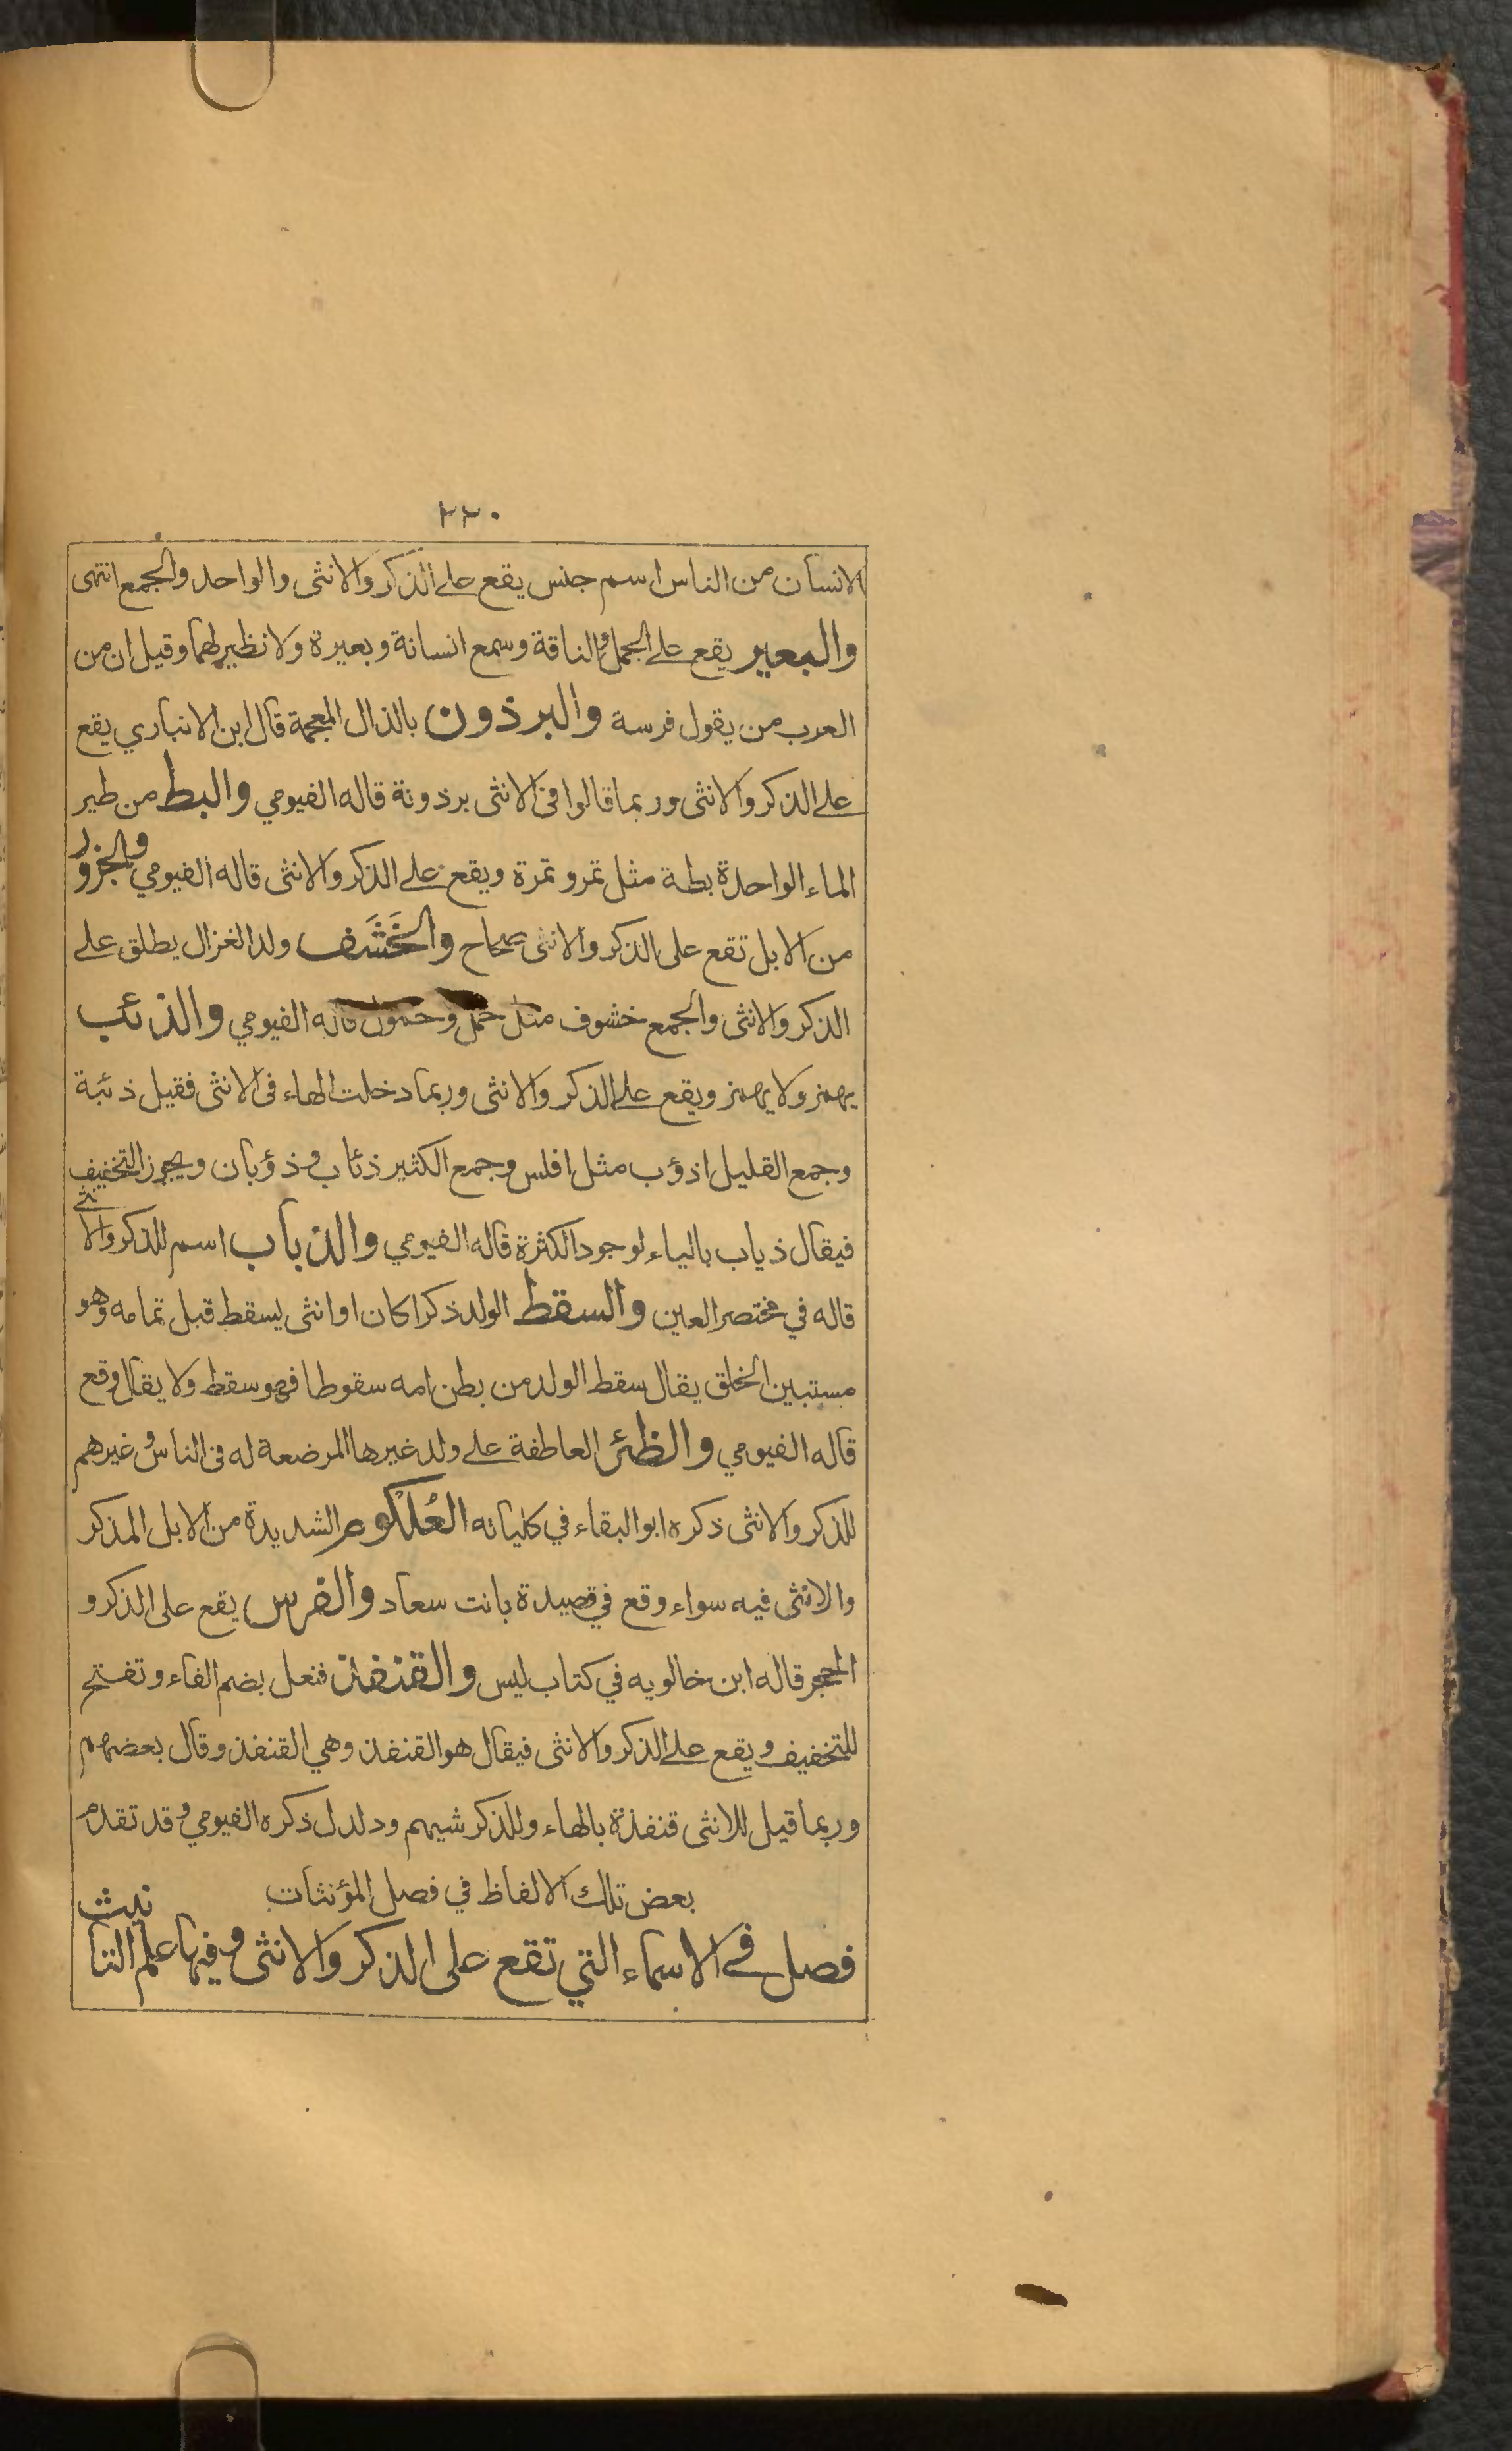 ٢٢٠
الانسان من الناس اسم جنس يقع على الذكر والانثى والواحد والجمع انتهى
والبعير يقع على الجمل والناقة وسمع انسانة وبعيرة ولا نظير لهما وقيل ان من
العرب من يقول فرسة والبرذون بالذال المعجمة قال ابن الانباري يقع
على الذكر والانثى وربما قالوا في الانثى برذونة قاله الفيومي والبط من طير
الماء الواحدة بطة مثل تمر وتمرة ويقع على الذكر والانثى قاله الفيومي والجزور
من الابل تقع على الذكر والانثى صحاح والخَشَف ولد الغزال يطلق على
الذكر والانثى والجمع خشوف مثل حمل وحمول قاله الفيومي والذئب
يهمز ولا يهمز ويقع على الذكر والانثى وربما دخلت الهاء في الانثى فقيل ذئبة
وجمع القليل اذؤب مثل افلس وجمع الكثير ذئاب وذؤبان ويجوز التخفيف
فيقال ذياب بالياء لوجود الكثرة قاله الفيومي والذباب اسم للذكر والانثى
قاله في مختصر العين والسقط الولد ذكرا كان او انثى يسقط قبل تمامه وهو
مستبين الخلق يقال سقط الولد من بطن امه سقوطا فهو سقط ولا يقال وقع
قاله الفيومي والظئر العاطفة على ولد غيرها المرضعة له في الناس وغيرهم
للذكر والانثى ذكره ابو البقاء في كلياته العُلكُوم الشديدة من الابل المذكر
والانثى فيه سواء وقع في قصيدة بانت سعاد والفرس يقع على الذكر و
الحجر قاله ابن خالويه في كتاب ليس والقنفذ فنعل بضم الفاء وتفتح
للتخفيف ويقع على الذكر والانثى فيقال هو القنفذ وهي القنفذ وقال بعضهم
وربما قيل للانثى قنفذة بالهاء وللذكر شيهم ودلدل ذكره الفيومي وقد تقدم
بعض تلك الالفاظ في فصل المؤنثات
فصل في الاسماء التي تقع على الذكر والانثى وفيها علم التانيث